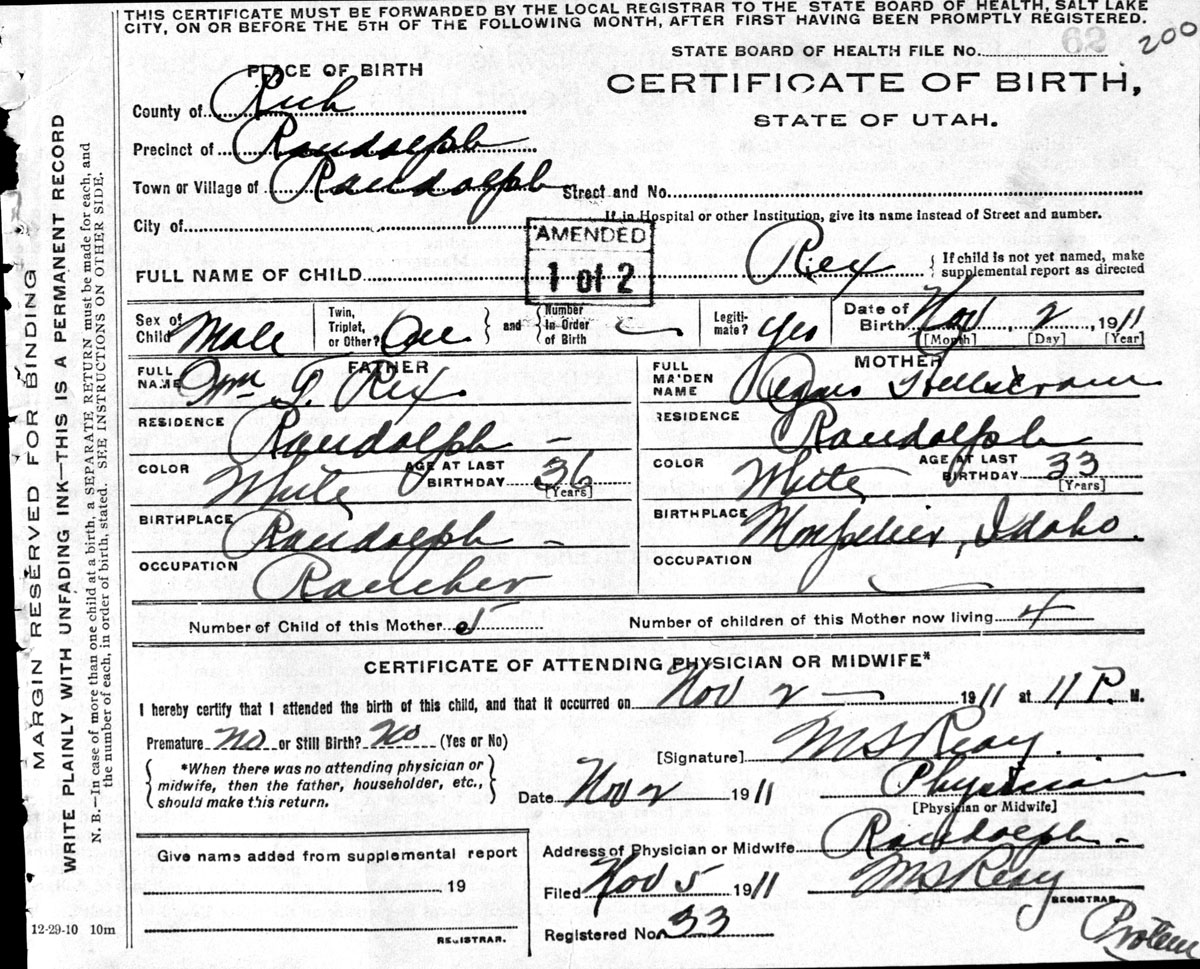 THIS CERTIFICATE MUST BE FORWARDED BY THE LOCAL REGISTRAR TO THE STATE BOARD OF HEALTH, SALT LAKE
CITY, ON OR BEFORE THE 5TH OF THE FOLLOWING MONTH, AFTER FIRST HAVING BEEN PROMPTLY REGISTERED.
200
STATE BOARD OF HEALTH FILE No. 62
PLACE OF BIRTH
CERTIFICATE OF BIRTH,
STATE OF UTAH.
County of Rich
Precinct of Randolph
Town or Village of Randolph Street and No.
If in Hospital or other Institution, give its name instead of Street and number.
City of
AMENDED
1 of 2
FULL NAME OF CHILD Rex { If child is not yet named, make
supplemental report as directed
Sex of Child Male Twin, Triplet, or Other? One } and { Number In Order of Birth Legiti-mate? Yes Date of Birth Nov 2, 1911
[Month] [Day] [Year]
FATHER
FULL NAME Wm G. Rex
RESIDENCE Randolph
COLOR White AGE AT LAST BIRTHDAY 36 [Years]
BIRTHPLACE Randolph
OCCUPATION Rancher
MOTHER
FULL MAIDEN NAME
RESIDENCE Randolph
COLOR White AGE AT LAST BIRTHDAY 33 [Years]
BIRTHPLACE Montpelier, Idaho.
OCCUPATION
Number of Child of this Mother 5 Number of children of this Mother now living 4
CERTIFICATE OF ATTENDING PHYSICIAN OR MIDWIFE*
I hereby certify that I attended the birth of this child, and that it occurred on Nov 2 1911 at 11 P. M.
Premature No or Still Birth? No (Yes or No)
*When there was no attending physician or
midwife, then the father, householder, etc.,
should make this return.
[Signature] M S Reay.
Physician
[Physician or Midwife]
Date Nov 2 1911
Address of Physician or Midwife Randolph
Filed Nov 5 1911 M S Reay
REGISTRAR.
Registered No. 33
Protem
Give name added from supplemental report
19
REGISTRAR.
12-29-10 10m
MARGIN RESERVED FOR BINDING
WRITE PLAINLY WITH UNFADING INK—THIS IS A PERMANENT RECORD
N. B.—In case of more than one child at a birth, a SEPARATE RETURN must be made for each, and
the number of each, in order of birth, stated. SEE INSTRUCTIONS ON OTHER SIDE.